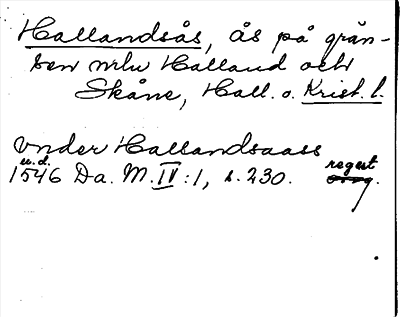 Hallandsås, ås på grän-
sen mlu Halland och
Skåne, Hall. o. Krist. l.
vnder Hallandsaass
u.d. regest
1546 Da. M. IV:1, s. 230. orig.